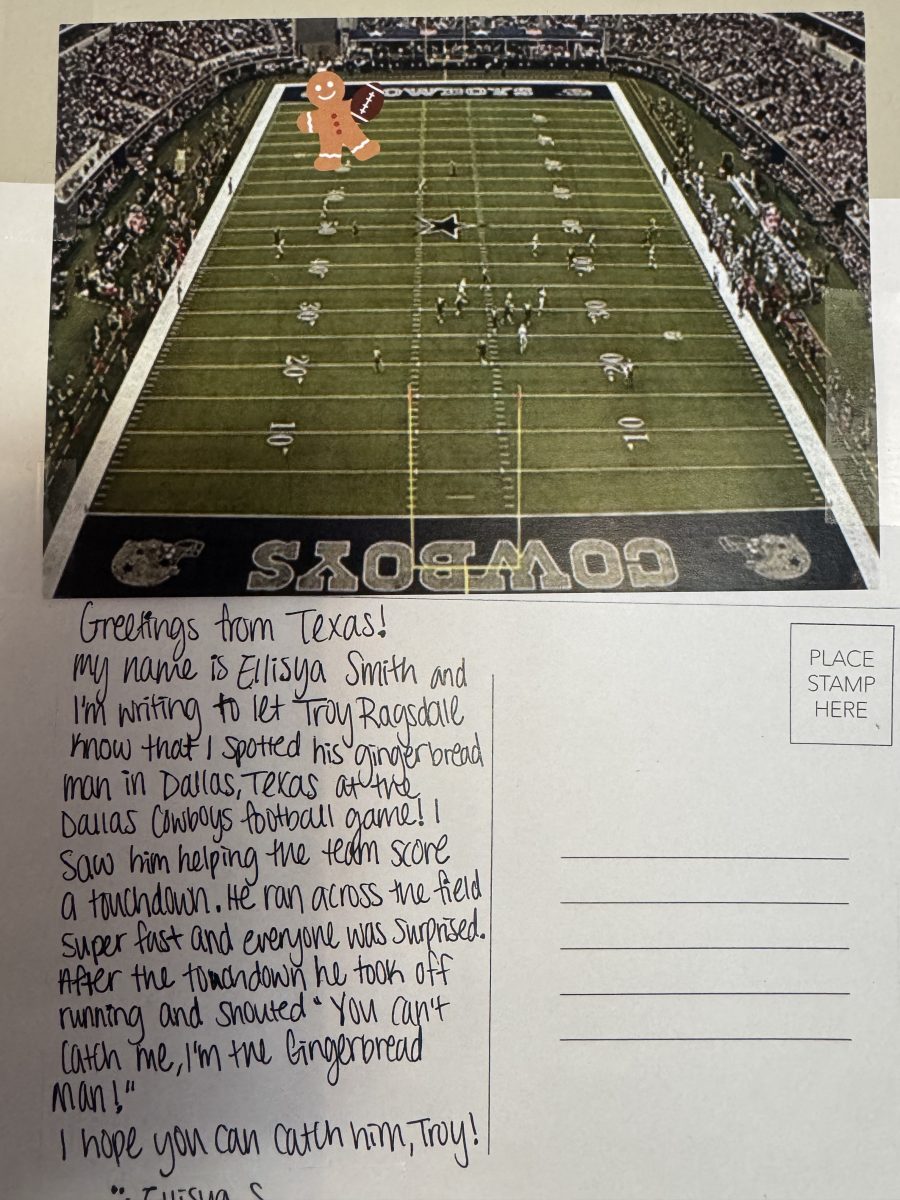 COWBOYS
20 20
10 10
COWBOYS
Greetings from Texas!
My name is Ellisya Smith and
I'm writing to let Troy Ragsdale
know that I spotted his gingerbread
man in Dallas, Texas at the
Dallas Cowboys football game! I
saw him helping the team score
a touchdown. He ran across the field
super fast and everyone was surprised.
After the touchdown he took off
running and shouted "You can't
catch me, I'm the Gingerbread
Man!"
I hope you can catch him, Troy!
Ellisya S
PLACE
STAMP
HERE